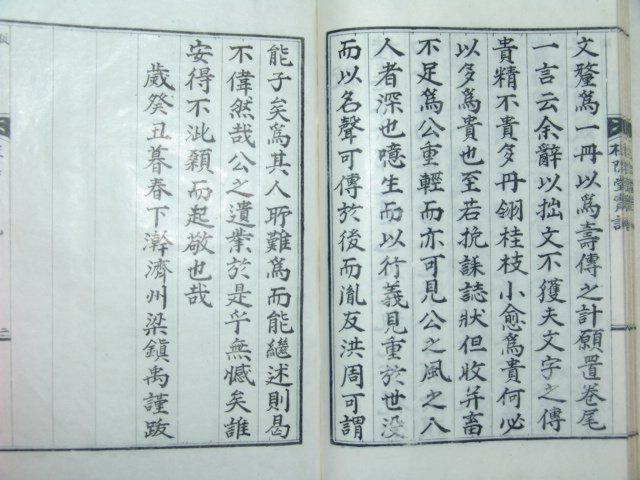 文瓥爲一冊以爲壽傳之計願置卷尾
一言云余辭以拙文不獲夫文字之傳
貴精不貴多丹翎桂枝小愈爲貴何必
以多爲貴也至若挽誄誌狀但收并畜
不足爲公重輕而亦可見公之風之入
人者深也噫生而以行義見重於世没
而以名聲可傳於後而胤友洪周可謂
能子矣爲其人所難爲而能繼述則曷
不偉然哉公之遺業於是乎無憾矣誰
安得不泚顙而起敬也哉
歲癸丑暮春下澣濟州梁鎭禹謹跋